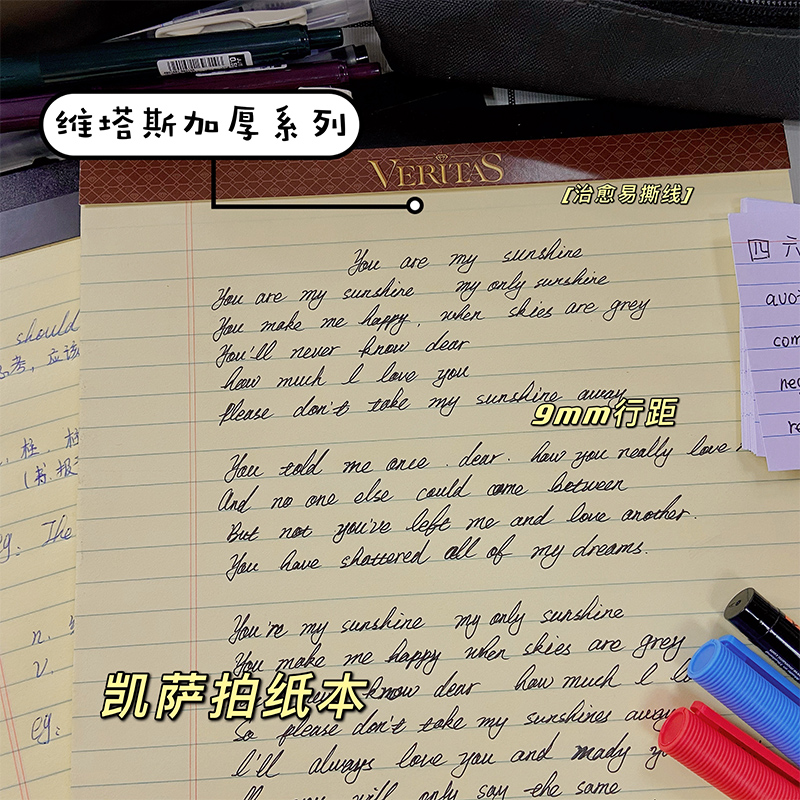 维塔斯加厚系列
VERITAS
[治愈易撕线]
You are my sunshine
You are my sunshine my only sunshine
You make me happy, when skies are grey
You'll never know dear
how much I love you
Please don't take my sunshine away
9mm行距
You told me once . dear. how you really love
And no one else could come between
But not you've left me and love another.
You have shattered all of my dreams.
You're my sunshine my only sunshine
You make me happy when skies are grey
know dear how much I l
凯萨拍纸本
So please don't take my sunshines away
I'll always love you and mady
will only say the same
should
应该
柱
eg: The
n.
v.
eg:
四 六
quo
com
neg
re